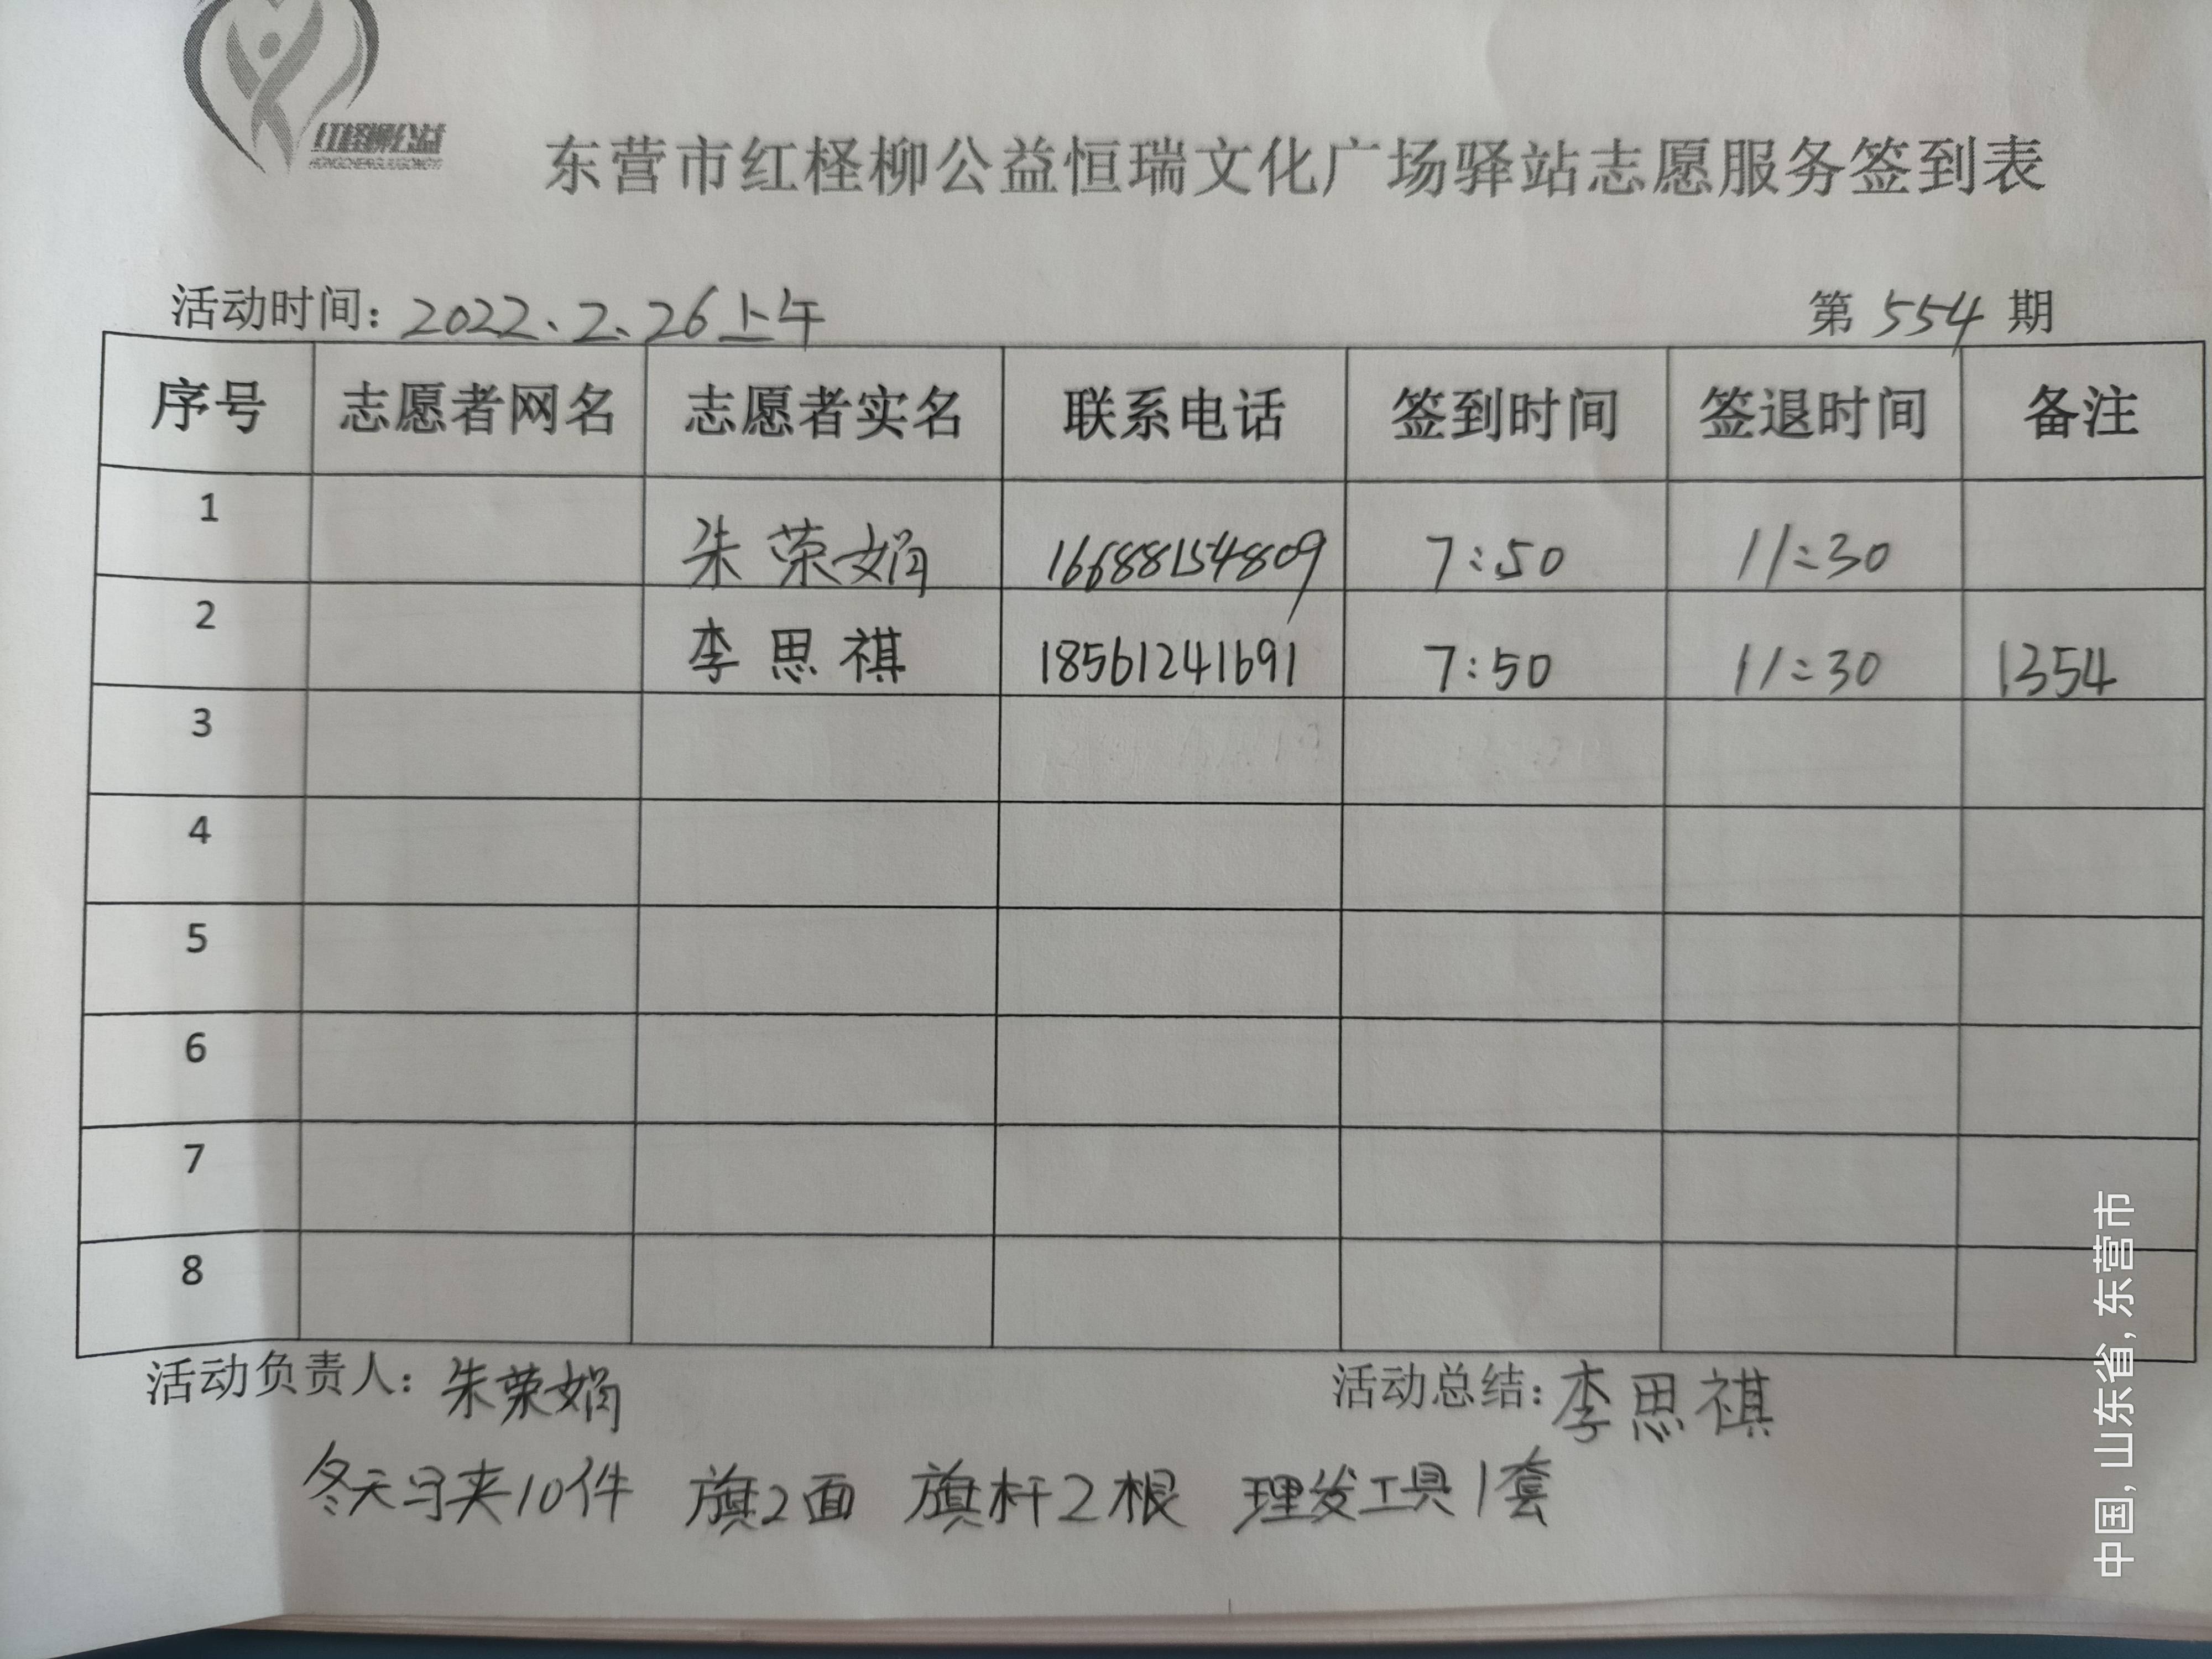 红柽柳公益
HONGCHENGLIUGONGYI
东营市红柽柳公益恒瑞文化广场驿站志愿服务签到表
活动时间：2022、2、26上午 第 554 期
序号 志愿者网名 志愿者实名 联系电话 签到时间 签退时间 备注
1 朱荣娟 16688154809 7:50 11:30
2 李思祺 18561241691 7:50 11:30 1354
3
4
5
6
7
8
活动负责人：朱荣娟 活动总结：李思祺
冬天马夹10件 旗2面 旗杆2根 理发工具1套
中国, 山东省, 东营市